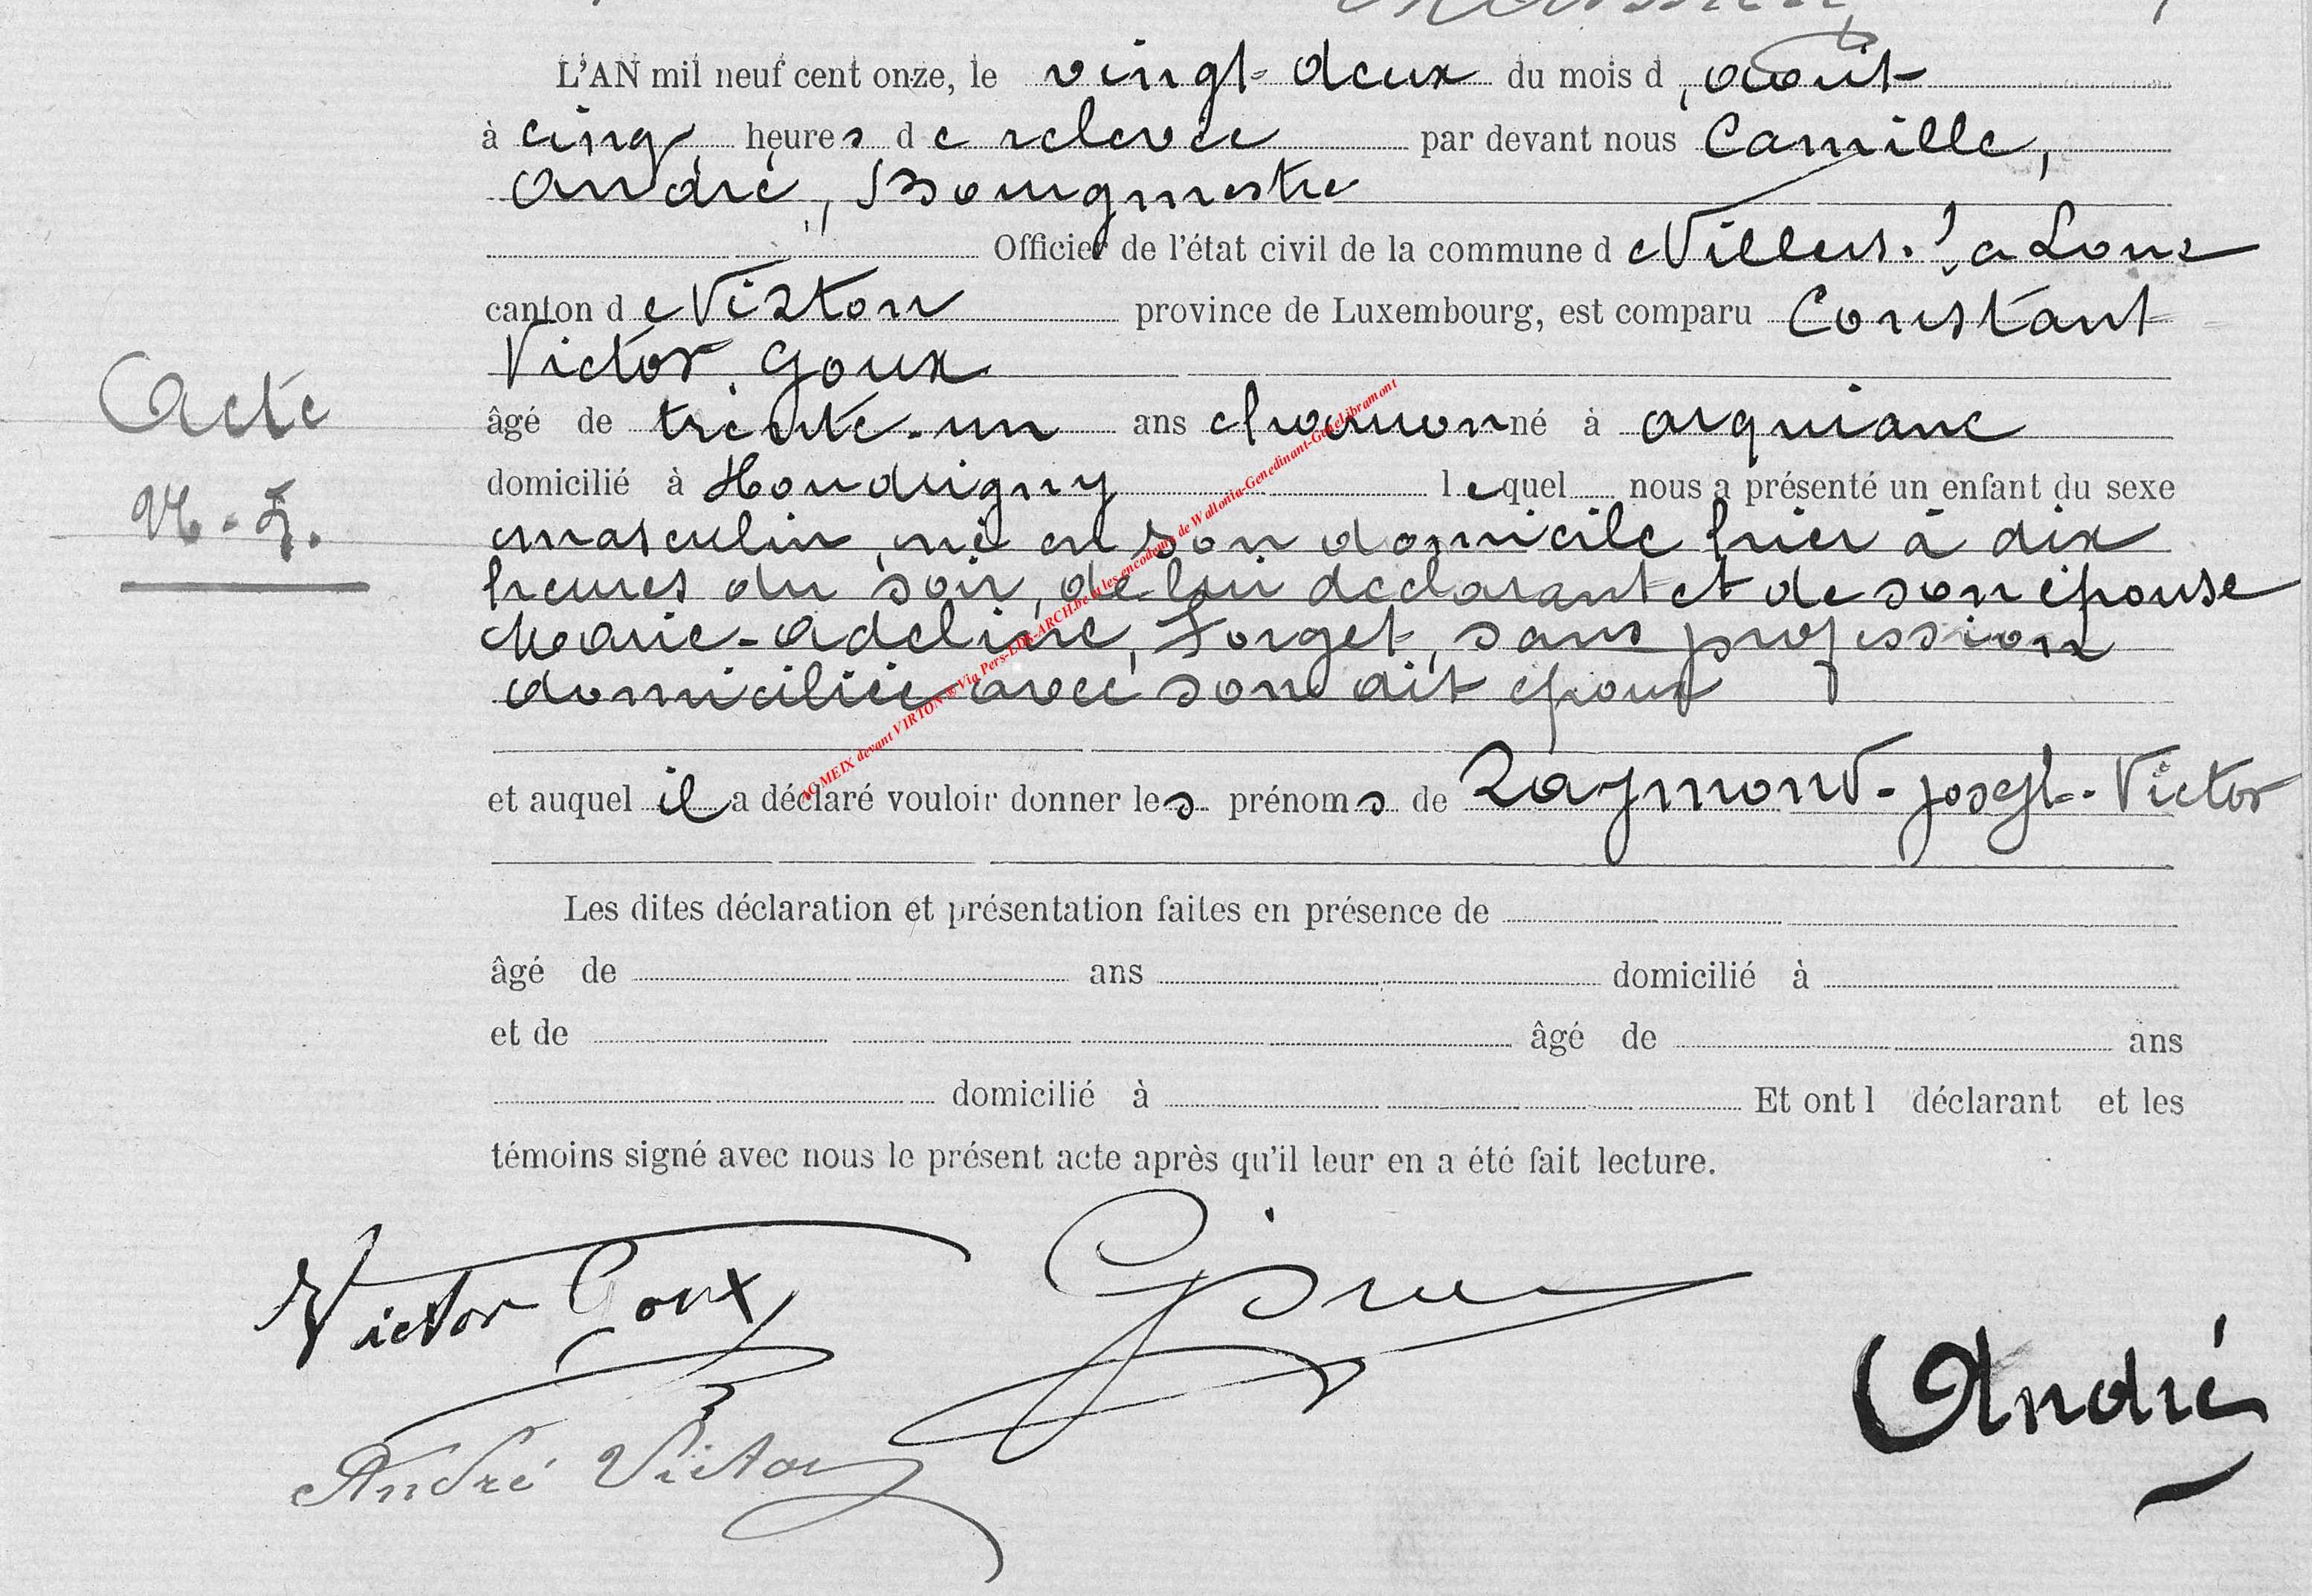 L'AN mil neuf cent onze, le vingt-deux du mois d'août
à cinq heures de relevée par devant nous Camille,
André, Bourgmestre
Officier de l'état civil de la commune de Villers-la Loue
canton de Virton province de Luxembourg, est comparu Constant
Victor Goux
âgé de trente-un ans charron né à orquianc
domicilié à Hondrigny lequel nous a présenté un enfant du sexe
masculin, né en son domicile hier à dix
heures du soir, de lui déclarant et de son épouse
Marie-Adeline, Forget, sans profession
domiciliée avec son dit époux
et auquel il a déclaré vouloir donner les prénoms de Raymond-Joseph-Victor
Les dites déclaration et présentation faites en présence de
âgé de ans domicilié à
et de âgé de ans
domicilié à Et ont l déclarant et les
témoins signé avec nous le présent acte après qu'il leur en a été fait lecture.
Acte
N.
Victor Goux
André Victor
André
AC MEIX devant VIRTON © Via Pers-LDK-ARCH.be et les encodeurs de Wallonia-Genedinant-GeneLibramont